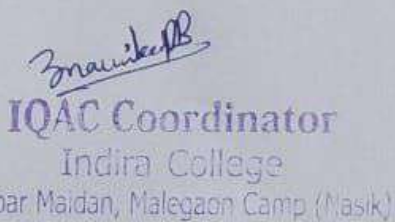 IQAC Coordinator
Indira College
Maidan, Malegaon Camp (Nasik)